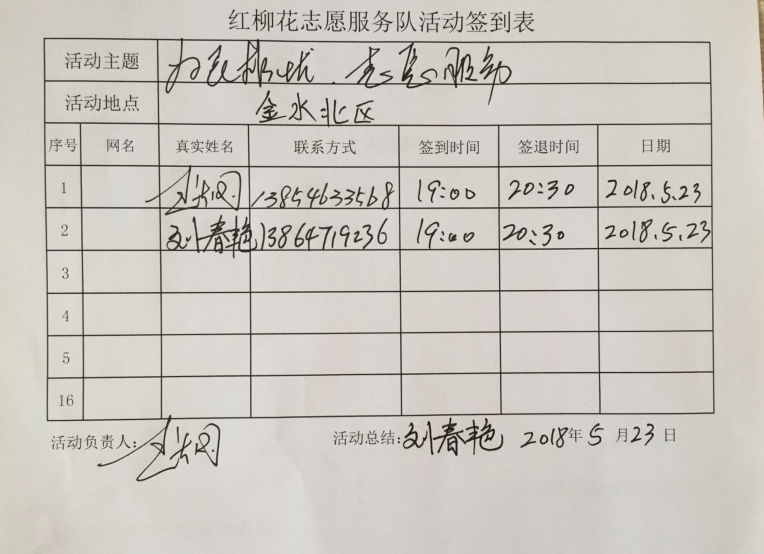 红柳花志愿服务队活动签到表
活动主题 为民排忧.志愿服务
活动地点 金水北区
序号 网名 真实姓名 联系方式 签到时间 签退时间 日期
1 13854633568 19:00 20:30 2018.5.23
2 刘春艳 13864719236 19:00 20:30 2018.5.23
3
4
5
16
活动负责人: 活动总结: 刘春艳 2018年5月23日